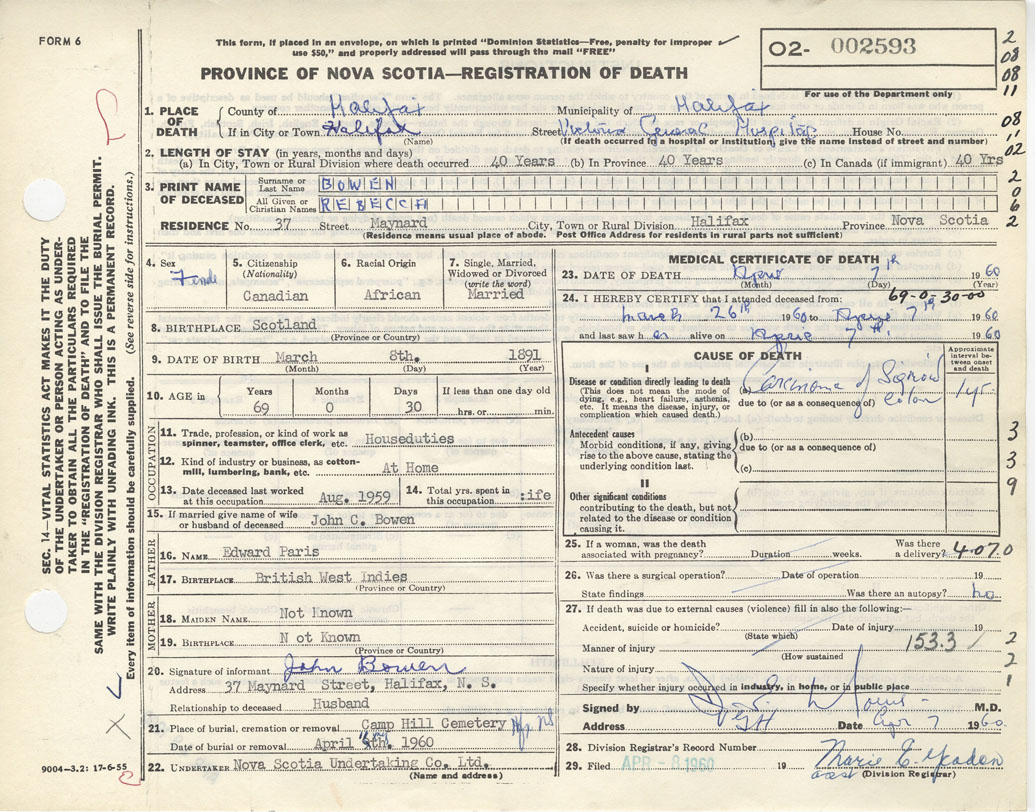 FORM 6
This form, if placed in an envelope, on which is printed "Dominion Statistics—Free, penalty for improper
use $50," and properly addressed will pass through the mail "FREE"
O2- 002593
For use of the Department only
PROVINCE OF NOVA SCOTIA—REGISTRATION OF DEATH
2
08
08
11
08
11
02
2
0
6
2
1. PLACE OF DEATH
County of Halifax Municipality of Halifax
If in City or Town Halifax Street Victoria General Hospital House No.
(Name) (If death occurred in a hospital or institution, give the name instead of street and number)
2. LENGTH OF STAY (in years, months and days)
(a) In City, Town or Rural Division where death occurred 40 Years (b) In Province 40 Years (c) In Canada (if immigrant) 40 Yrs
3. PRINT NAME OF DECEASED
Surname or Last Name BOWEN
All Given or Christian Names REBECCA
RESIDENCE No. 37 Street Maynard City, Town or Rural Division Halifax Province Nova Scotia
(Residence means usual place of abode. Post Office Address for residents in rural parts not sufficient)
4. Sex Female
5. Citizenship (Nationality) Canadian
6. Racial Origin African
7. Single, Married, Widowed or Divorced (write the word) Married
8. BIRTHPLACE Scotland
(Province or Country)
9. DATE OF BIRTH March 8th. 1891
(Month) (Day) (Year)
10. AGE in Years 69 Months 0 Days 30 If less than one day old hrs. or min.
OCCUPATION
11. Trade, profession, or kind of work as spinner, teamster, office clerk, etc. Houseduties
12. Kind of industry or business, as cotton-mill, lumbering, bank, etc. At Home
13. Date deceased last worked at this occupation Aug. 1959
14. Total yrs. spent in this occupation :ife
15. If married give name of wife or husband of deceased John C. Bowen
FATHER
16. NAME Edward Paris
17. BIRTHPLACE British West Indies
(Province or Country)
MOTHER
18. MAIDEN NAME Not Known
19. BIRTHPLACE N ot Known
(Province or Country)
20. Signature of informant John Bowen
Address 37 Maynard Street, Halifax, N. S.
Relationship to deceased Husband
21. Place of burial, cremation or removal Camp Hill Cemetery Hfx NS
Date of burial or removal April th. 1960
22. UNDERTAKER Nova Scotia Undertaking Co. Ltd.
(Name and address)
MEDICAL CERTIFICATE OF DEATH
23. DATE OF DEATH April 7th 1960
(Month) (Day) (Year)
24. I HEREBY CERTIFY that I attended deceased from: 69-0-30-00
March 26th 1960 to April 7th 1960
and last saw her alive on April 7th. 1960
CAUSE OF DEATH
Approximate interval between onset and death
I
Disease or condition directly leading to death
(This does not mean the mode of dying, e.g., heart failure, asthenia, etc. It means the disease, injury, or complication which caused death.)
(a) Carcinoma of Sigmoid
due to (or as a consequence of) Colon
Antecedent causes
Morbid conditions, if any, giving rise to the above cause, stating the underlying condition last.
(b)
due to (or as a consequence of)
(c)
3
3
9
II
Other significant conditions
contributing to the death, but not related to the disease or condition causing it.
25. If a woman, was the death associated with pregnancy? Duration weeks. Was there a delivery? 4.070
26. Was there a surgical operation? Date of operation 19
State findings Was there an autopsy? no
27. If death was due to external causes (violence) fill in also the following:—
Accident, suicide or homicide? Date of injury 19
(State which)
Manner of injury 153.3 2
(How sustained)
Nature of injury 2
Specify whether injury occurred in industry, in home, or in public place 1
Signed by M.D.
Address VGH Date Apr 7 1960.
28. Division Registrar's Record Number
29. Filed APR - 8 1960 19 Marie E. Meaden
(Division Registrar)
SEC. 14—VITAL STATISTICS ACT MAKES IT THE DUTY
OF THE UNDERTAKER OR PERSON ACTING AS UNDER-
TAKER TO OBTAIN ALL THE PARTICULARS REQUIRED
IN THE "REGISTRATION OF DEATH" AND TO FILE THE
SAME WITH THE DIVISION REGISTRAR WHO SHALL ISSUE THE BURIAL PERMIT.
WRITE PLAINLY WITH UNFADING INK. THIS IS A PERMANENT RECORD.
Every item of information should be carefully supplied. (See reverse side for instructions.)
9004-3.2: 17-6-55